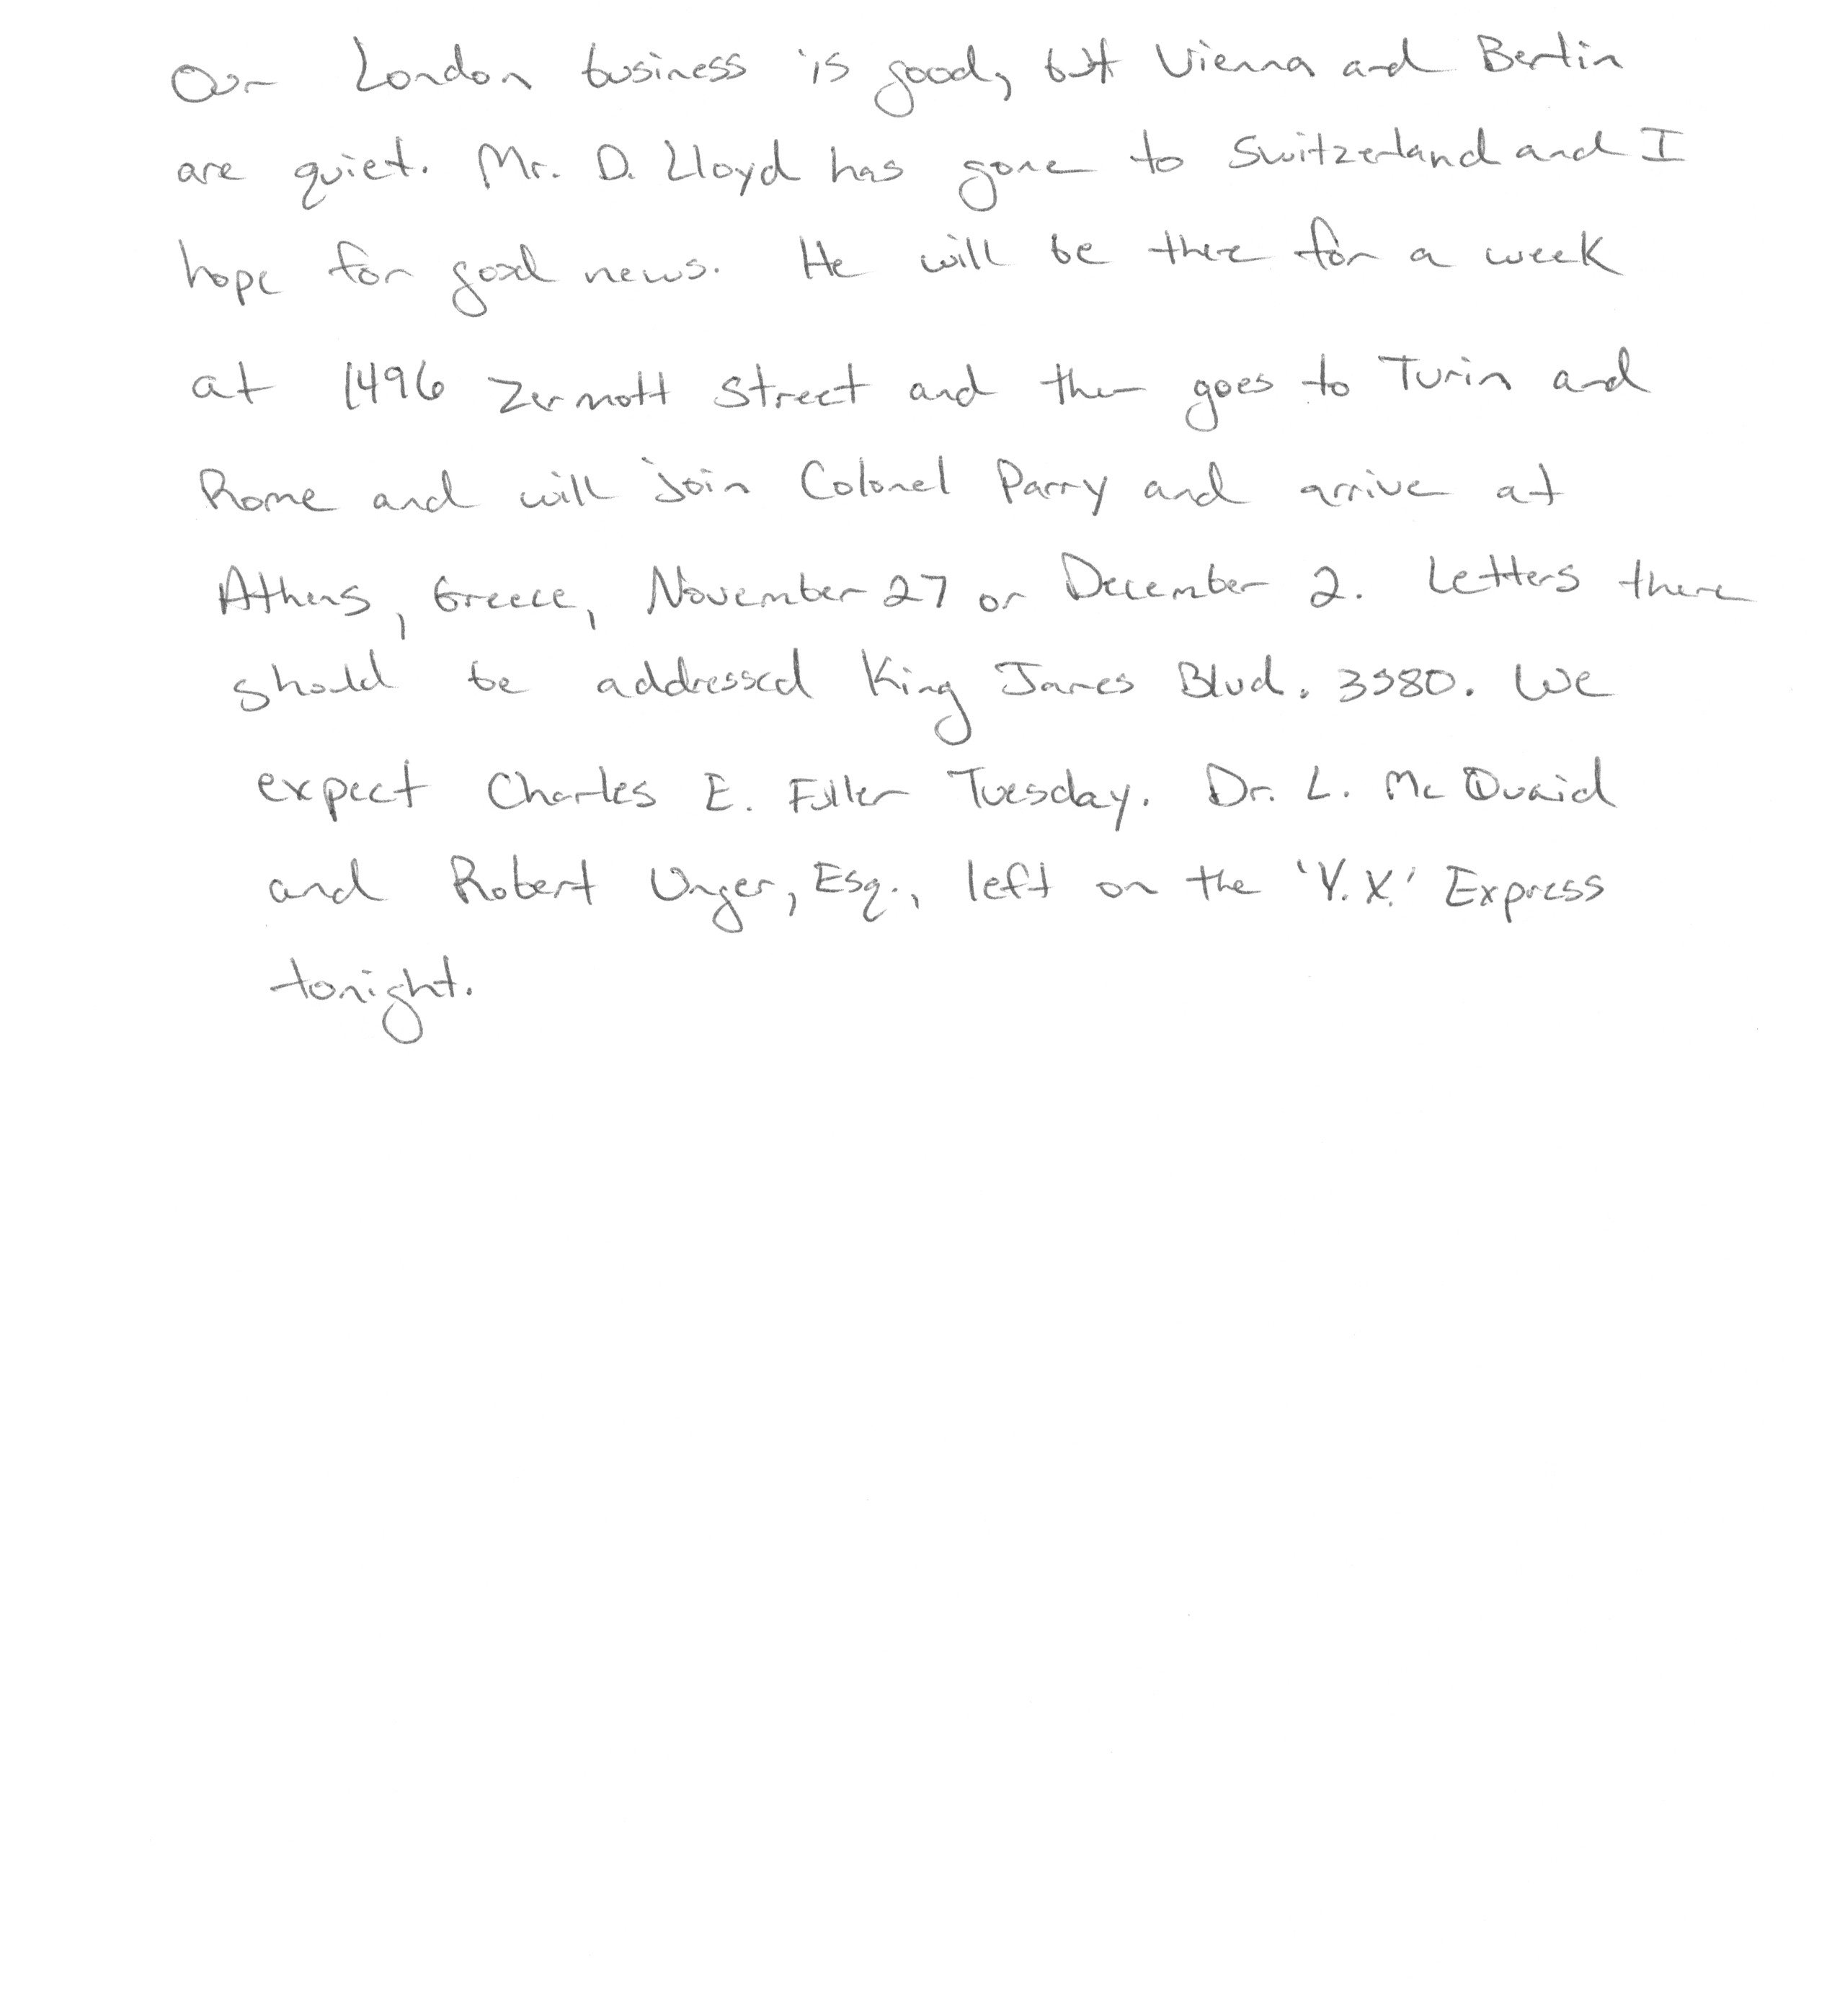 Our London business is good, but Vienna and Berlin
are quiet. Mr. D. Lloyd has gone to Switzerland and I
hope for good news. He will be there for a week
at 1496 Zermott Street and then goes to Turin and
Rome and will join Colonel Parry and arrive at
Athens, Greece, November 27 or December 2. Letters there
should be addressed King James Blvd. 3580. We
expect Charles E. Fuller Tuesday. Dr. L. McQuaid
and Robert Unger, Esq., left on the 'Y.X.' Express
tonight.